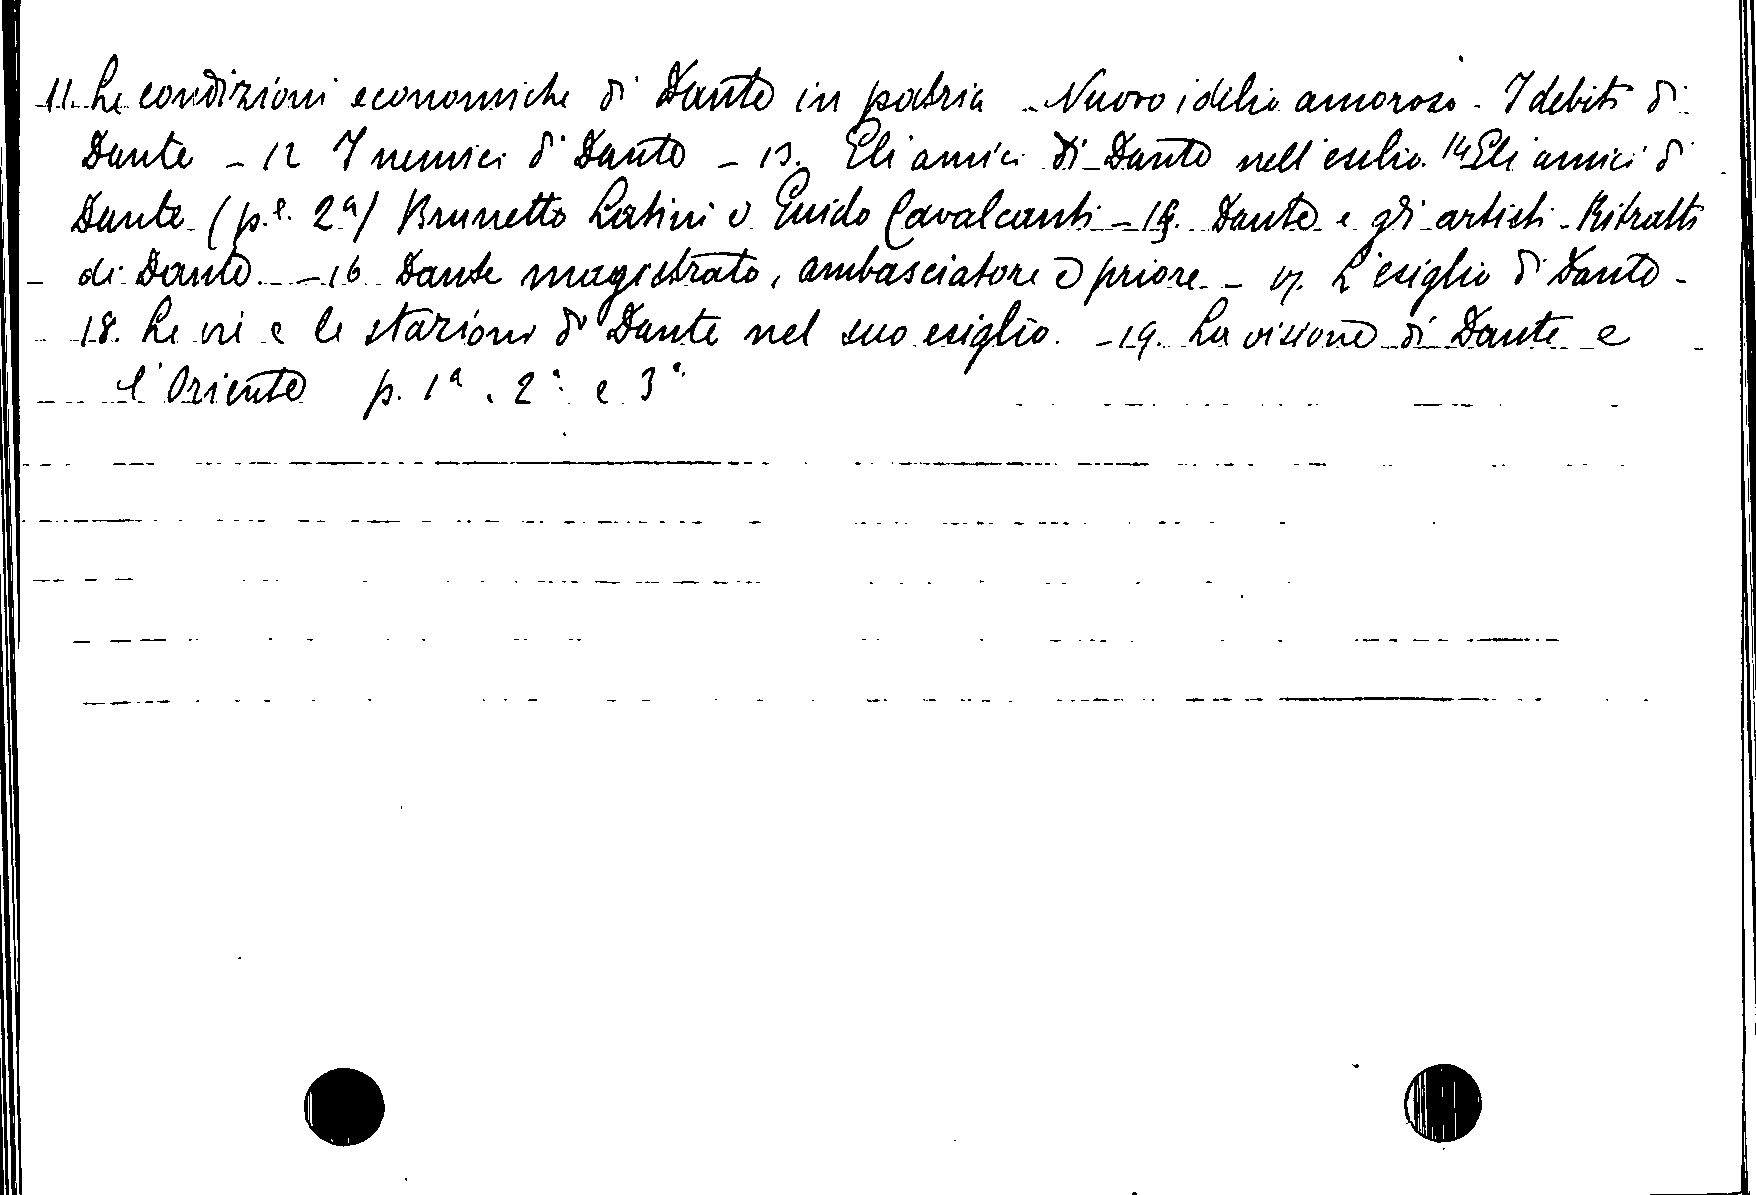 11. Le condizioni economiche di Dante in patria - Nuovo idelio amoroso - I debiti di
Dante - 12 I nemici di Dante - 13. Gli amici di Dante nell'esilio. 14 Gli amici di
Dante (p.e 2ª) Brunetto Latini e Guido Cavalcanti - 15. Dante e gli artisti - Ritratti
di Dante - 16 Dante magistrato, ambasciatore e priore - 17. L'esiglio di Dante -
18. Le vie e le stazioni di Dante nel suo esiglio. - 19. La visione di Dante e
l'Oriente p. 1ª, 2ª e 3ª